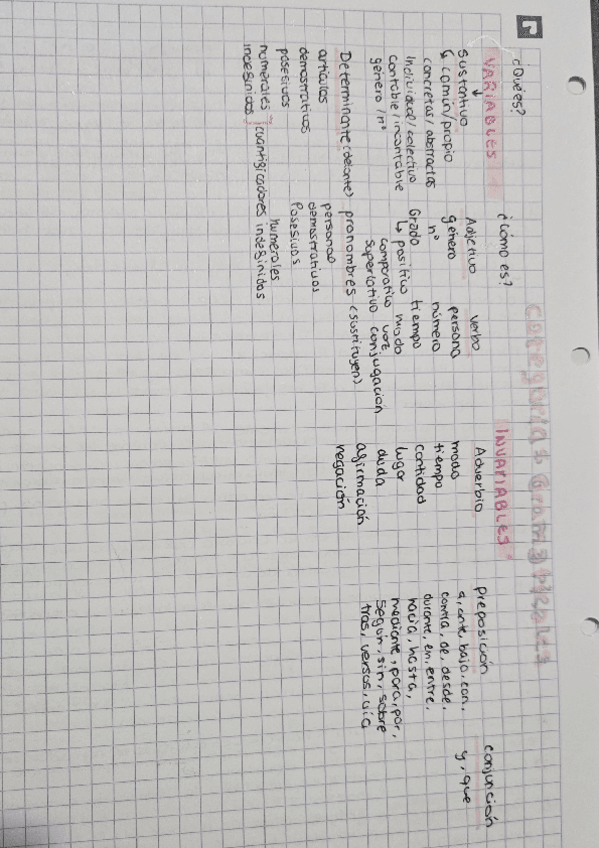 categorías Gramaticales
VARIABLES
INVARIABLES
¿Qué es?
¿Cómo es?
Sustantivo
↳ común/propio
concretas/abstractas
Individual/colectivo
contable/incontable
género/nº
Adjetivo
género
nº
Grado
↳ positivo
comparativo
superlativo
verbo
persona
número
tiempo
modo
voz
conjugación
Determinante (delante)
artículos
demostrativos
posesivos
numerales
indefinidos
(cuantificadores
pronombres (sustituyen)
personal
demostrativos
Posesivos
numerales
indefinidos
Adverbio
modo
tiempo
cantidad
lugar
duda
afirmación
negación
preposición
a, ante, bajo, con,
contra, de, desde,
durante, en, entre,
hacia, hasta,
mediante, para, por,
según, sin, sobre
tras, versos, vía
conjunción
y, que